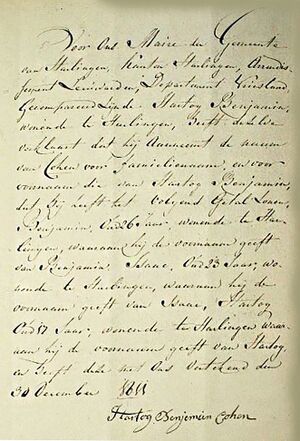 Voor Ons Maire der Gemeente
van Harlingen, Kanton Harlingen, Arrondis-
sement Leeuwarden, Departement Vriesland
Gecompareerd zinde Hartog Benjamin,
wonende te Harlingen, heeft dezelve
verklaart dat hij Aanneemt de naam
van Cohen voor Familienaam, en voor
voornaam die van Hartog Benjamin,
dat hij heeft het volgens Getal Zonen,
Benjamin, Oud 26 Jaar, wonende te Har-
lingen, waaraan hij de voornaam geeft
van Benjamin. Isaac, Oud 23 Jaar, wo-
nende te Harlingen, waaraan hij de
voornaam geeft van Isaac, Hartog
Oud 17 Jaar, wonende te Harlingen waar-
aan hij de voornaam geeft van Hartog,
en heeft deze met Ons Getekend den
30 December 1811
Hartog Benjemin Cohen